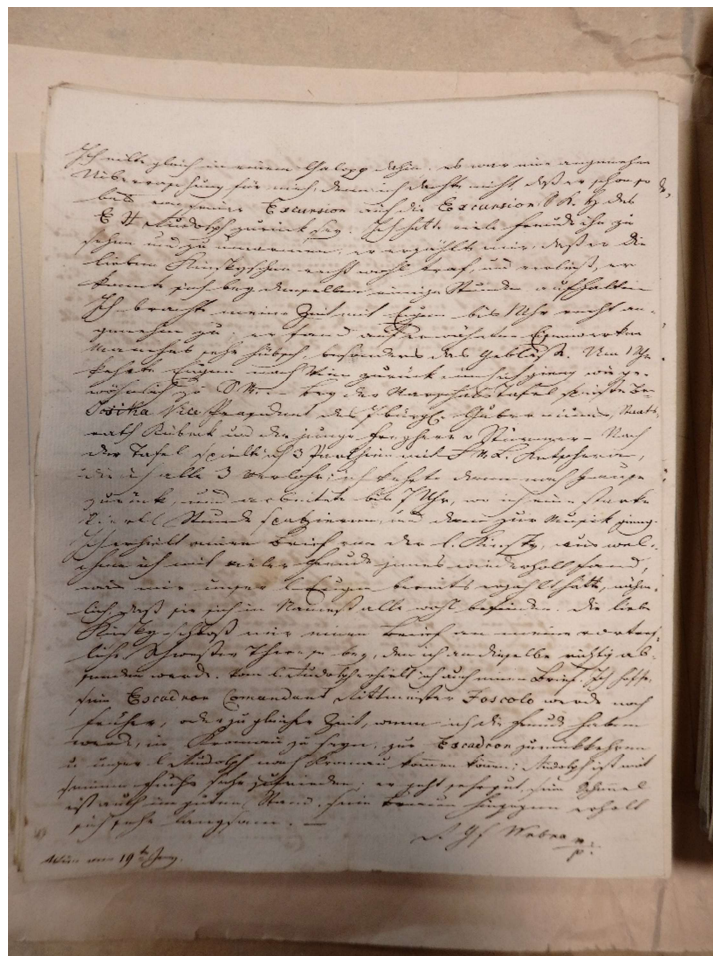 Ich eilte gleich in einem Galopp dahin. es war eine angenehme
Ueberraschung für mich, denn ich dachte nicht, daß er schon so
bald von seiner Excursion auf die Excursion S. K. H. des
E. H. Rudolph zurück sey. Ich hatte viele Freude ihn zu
sehen und zu umarmen, er erzählte mir, daß er die
lieben Kinskyschen recht wohl traf, und verließ, er
konnte sich bey denselben einige Stunden aufhalten
Ich brachte meine Zeit mit Eugen bis Uhr recht an-
genehm zu; er fand
Manches sehr hübsch, besonders das Gebläse. Um 1 Uhr
kehrte Eugen nach Wien zurück und ich ging wie ge-
wöhnlich zu bey der Marschalls Tafel speiste B.
Josika Vice Præsident des Siebbürg. Guberniums, Staats-
rath Kübeck und der junge Freyherr v Stürmer – Nach
der Tafel spielte ich 3 Parthien mit F. M. L. Kutschera,
die ich alle 3 verlohr; ich kehrte dann nach Hause
zurück, und arbeitete bis 7 Uhr, wo ich eine starke
Stunde spatzieren, und dann zur Musick ging.
Ich erhielt einen Brief von der l. Kinsky, aus wel-
chem ich mit vieler Freude jenes wiederholt fand,
was mir unser l. Eugen bereits erzählt hatte, nähm-
lich, daß sie sich in alle wohl befinden. Die liebe
Kinsky schloß mir einen Brief an meine vortref-
liche Schwester Therese bey, den ich an dieselbe richtig ab-
senden werde. Vom l. Rudolph erhielt ich auch einen Brief. Ich hoffe,
sein Escadron Comandant Rittmeister Foscolo werde noch
früher, oder zu gleicher Zeit, wenn ich die Freude haben
werde, in Kromau zu seyn, zur Escadron zurückkehren
u. unser l. Rudolph nach Kromau kommen können; Rudolph ist mit
seinem Fuchs sehr zufrieden; er geht sehr gut, sein Schimel
ist auch im guten Stand, sein Braun hingegen erholt
sich sehr langsam. –
Wien am 19ten